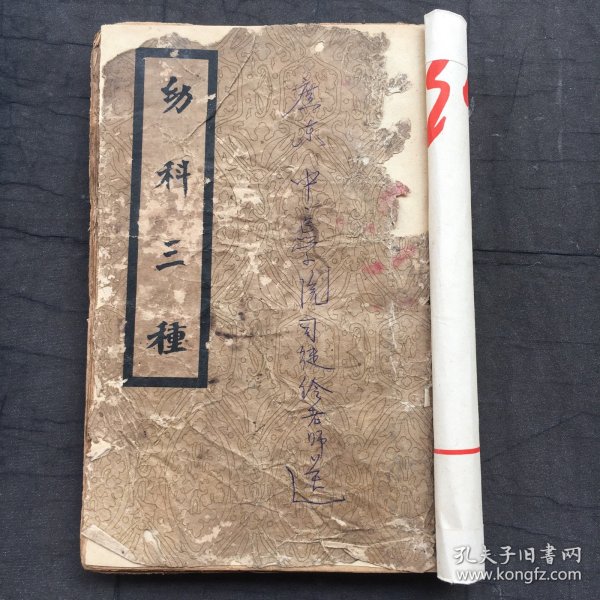 幼科三種
廣东中医学院司徒铃老师送
孔夫子旧书网
www.kongfz.com